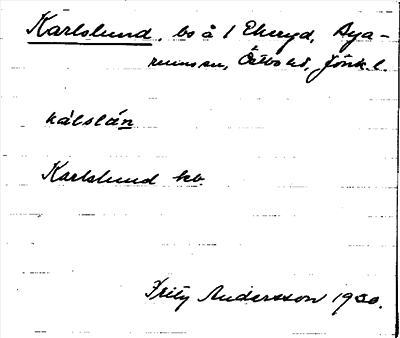 Karlslund, bs å 1 Ekeryd, Bya-
rums sn, Östbo hd, Jönk. l.
kálslán
Karlslund kb.
Fritz Andersson 1930.